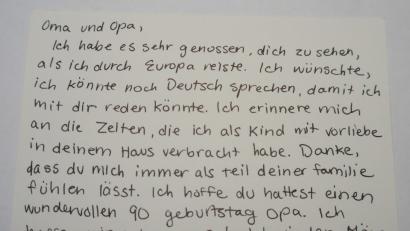 Oma und Opa,
Ich habe es sehr genossen, dich zu sehen,
als ich durch Europa reiste. Ich wünschte,
ich könnte noch Deutsch sprechen, damit ich
mit dir reden könnte. Ich erinnere mich
an die Zeiten, die ich als Kind mit vorliebe
in deinem Haus verbracht habe. Danke,
dass du mich immer als teil deiner familie
fühlen lässt. Ich hoffe du hattest einen
wundervollen 90 geburtstag Opa. Ich